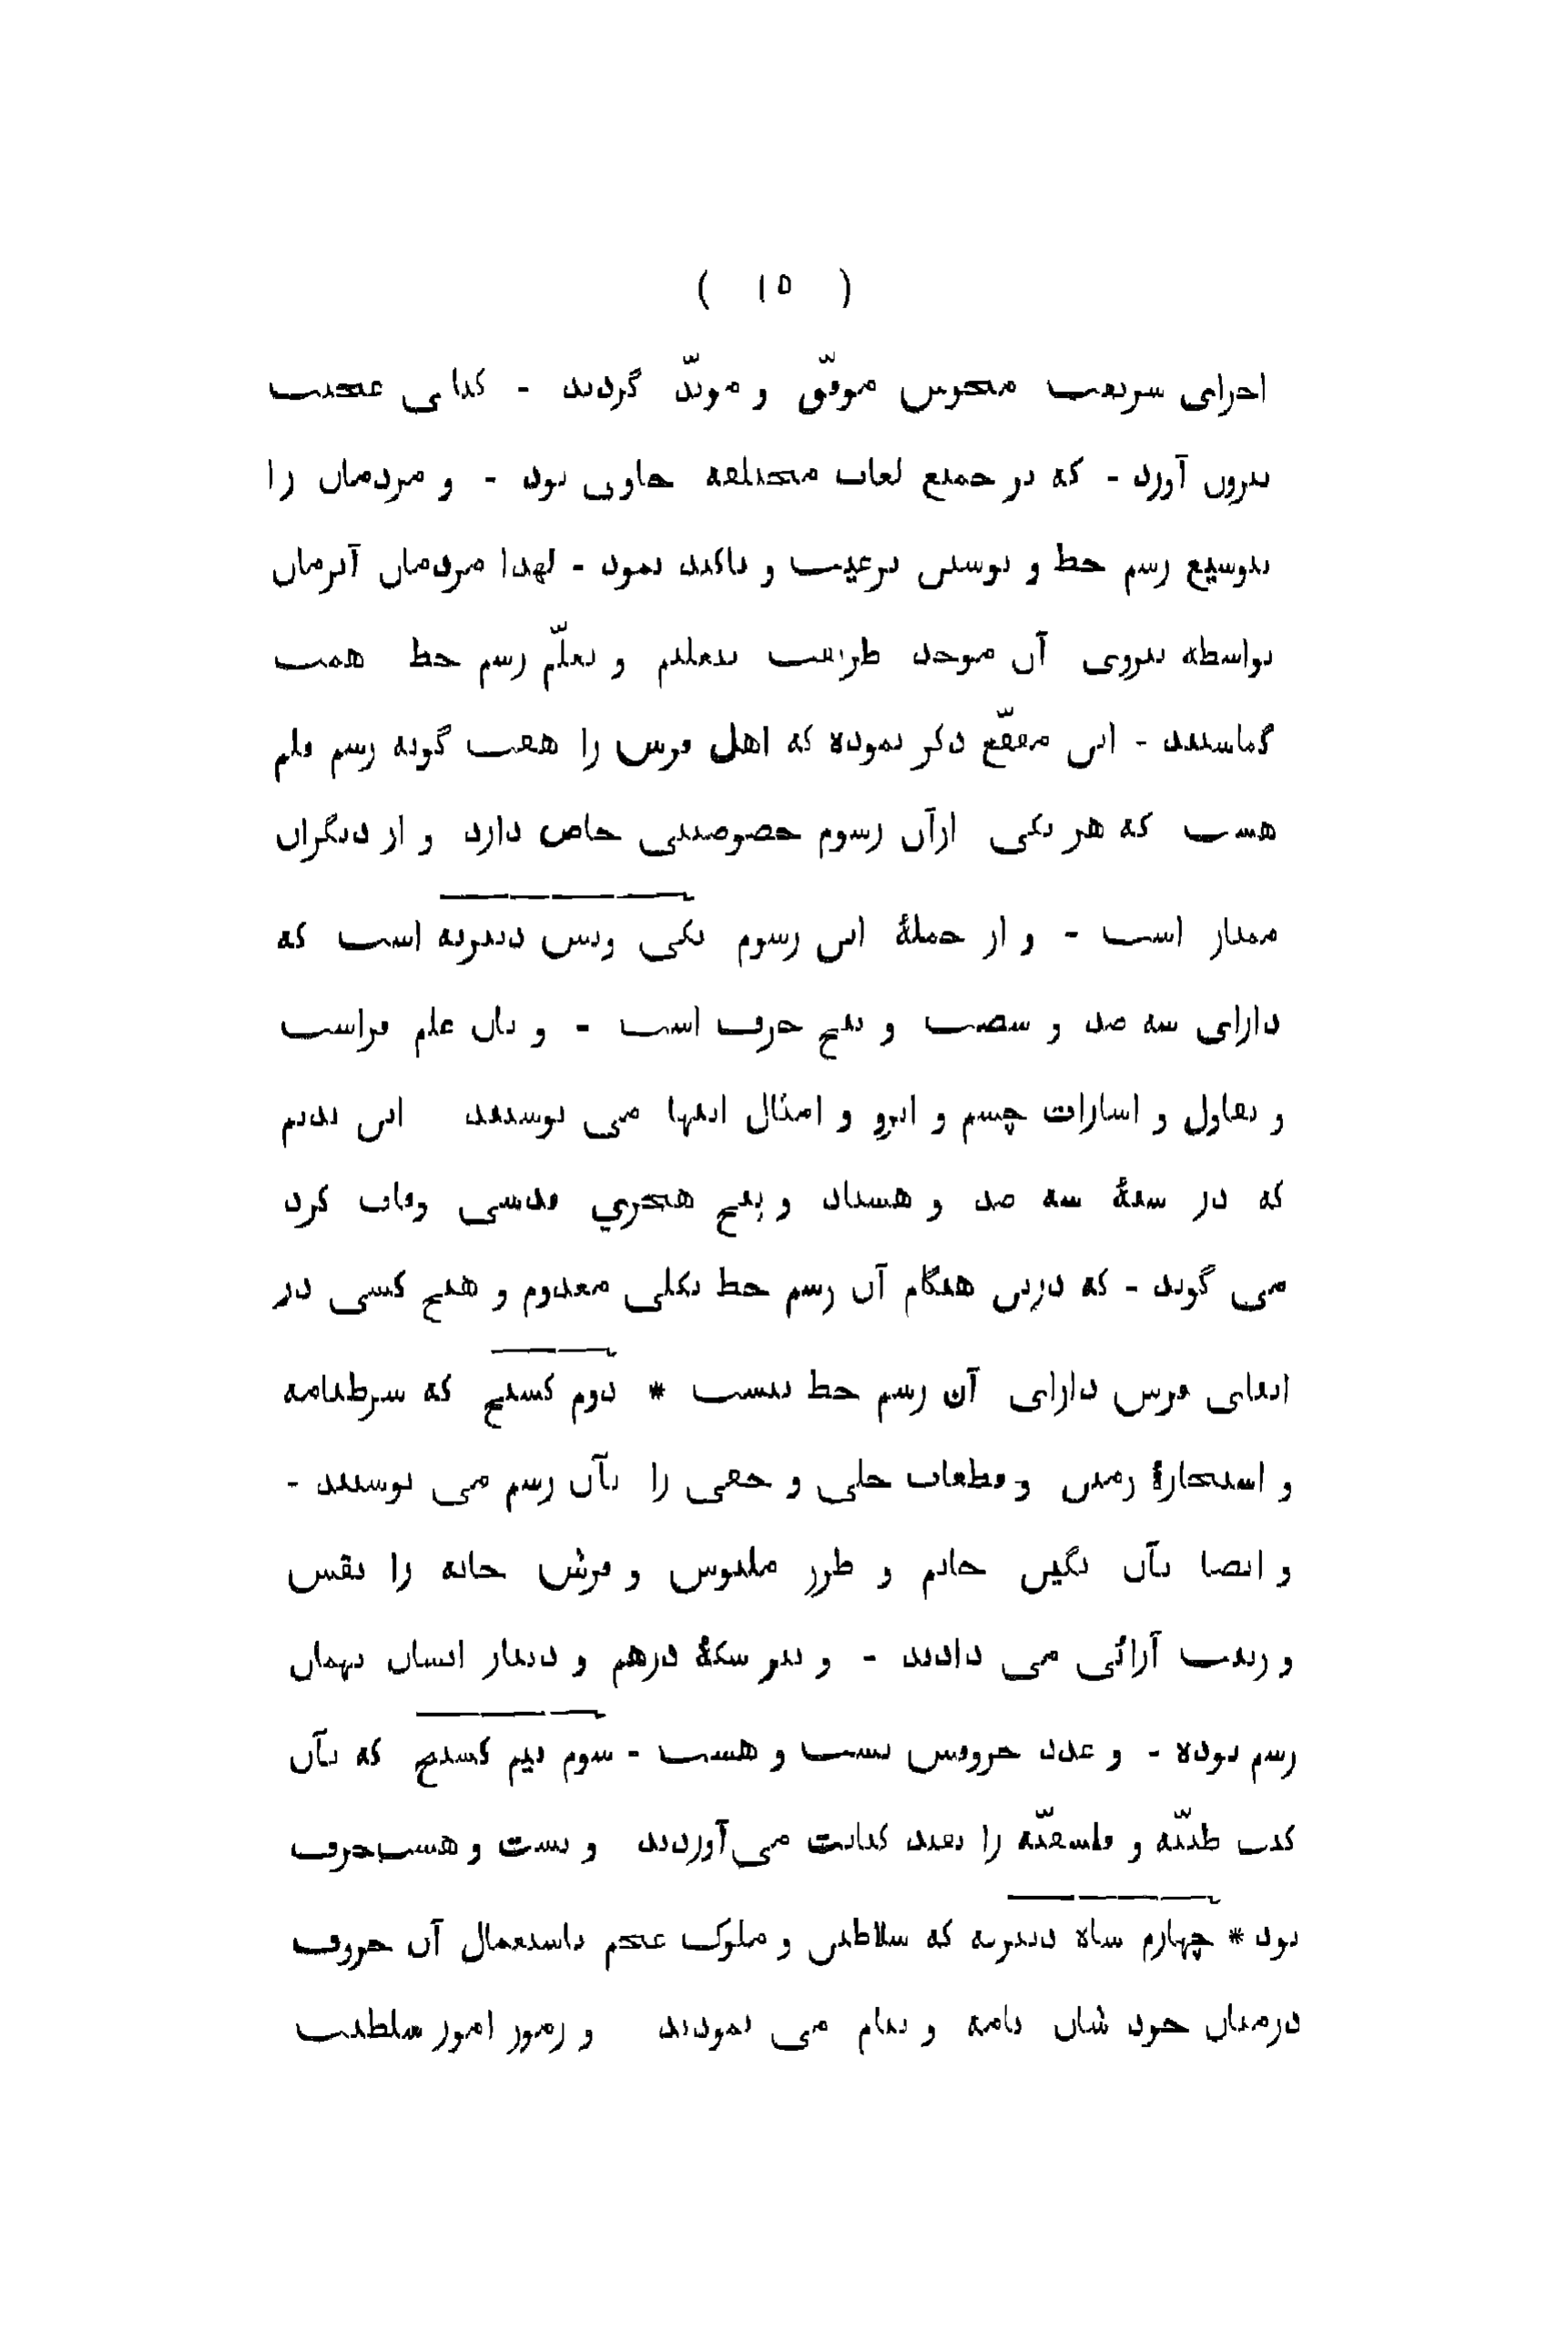 ( ١٥ )
اجرای شریعت مجوس موفّق و مویّد گردید - کتابی عجیب
بیرون آورد - که در جمیع لغات مختلفه حاوی بود - و مردمان را
بتوسیع رسم خط و نوشتن ترغیب و تاکید نمود - لهذا مردمان آنزمان
بواسطه پیروی آن موجد طریقت بتعلیم و تعلّم رسم خط همت
گماشتند - ابن مقفّع ذکر نموده که اهل فرس را هفت گونه رسم قلم
هست که هر یکی ازآن رسوم خصوصیتی خاص دارد و از دیگران
ممتاز است - و از جملهٔ این رسوم یکی ویش دبیریه است که
دارای سه صد و شصت و پنج حرف است - و بآن علم فراست
و تفاول و اشارات چشم و ابرو و امثال اینها می نوشتند ابن ندیم
که در سنهٔ سه صد و هشتاد و پنج هجري قدسی وفات کرد
می گوید - که درین هنگام آن رسم خط بکلی معدوم و هیچ کسی در
ابنای فرس دارای آن رسم خط نیست * دوم کستج که شرطنامه
و استجارهٔ زمین و قطعات جلی و خفی را بآن رسم می نوشتند -
و ایضا بآن نگین خاتم و طرز ملبوس و فرش خانه را نقش
و زینت آرائی می دادند - و نیز سکهٔ درهم و دینار ایشان بهمان
رسم بوده - و عدد حروفش بیست و هشت - سوم نیم کستج که بآن
کتب طبیّه و فلسفیّه را بقید کتابت می آوردند و بیست و هشت حرف
بود * چهارم شاه دبیریه که سلاطین و ملوک عجم باستعمال آن حروف
درمیان خود شان نامه و پیام می نمودند و رموز امور سلطنت